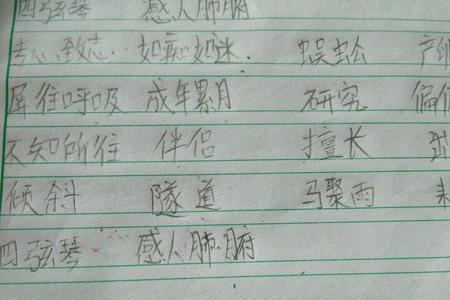 四弦琴 感人肺腑
专心致志. 如痴如迷. 蜈蚣
屏往呼吸 成年累月 研究 偏
不知所往 伴侣 擅长
倾斜 隧道 马聚雨
四弦琴 感人肺腑